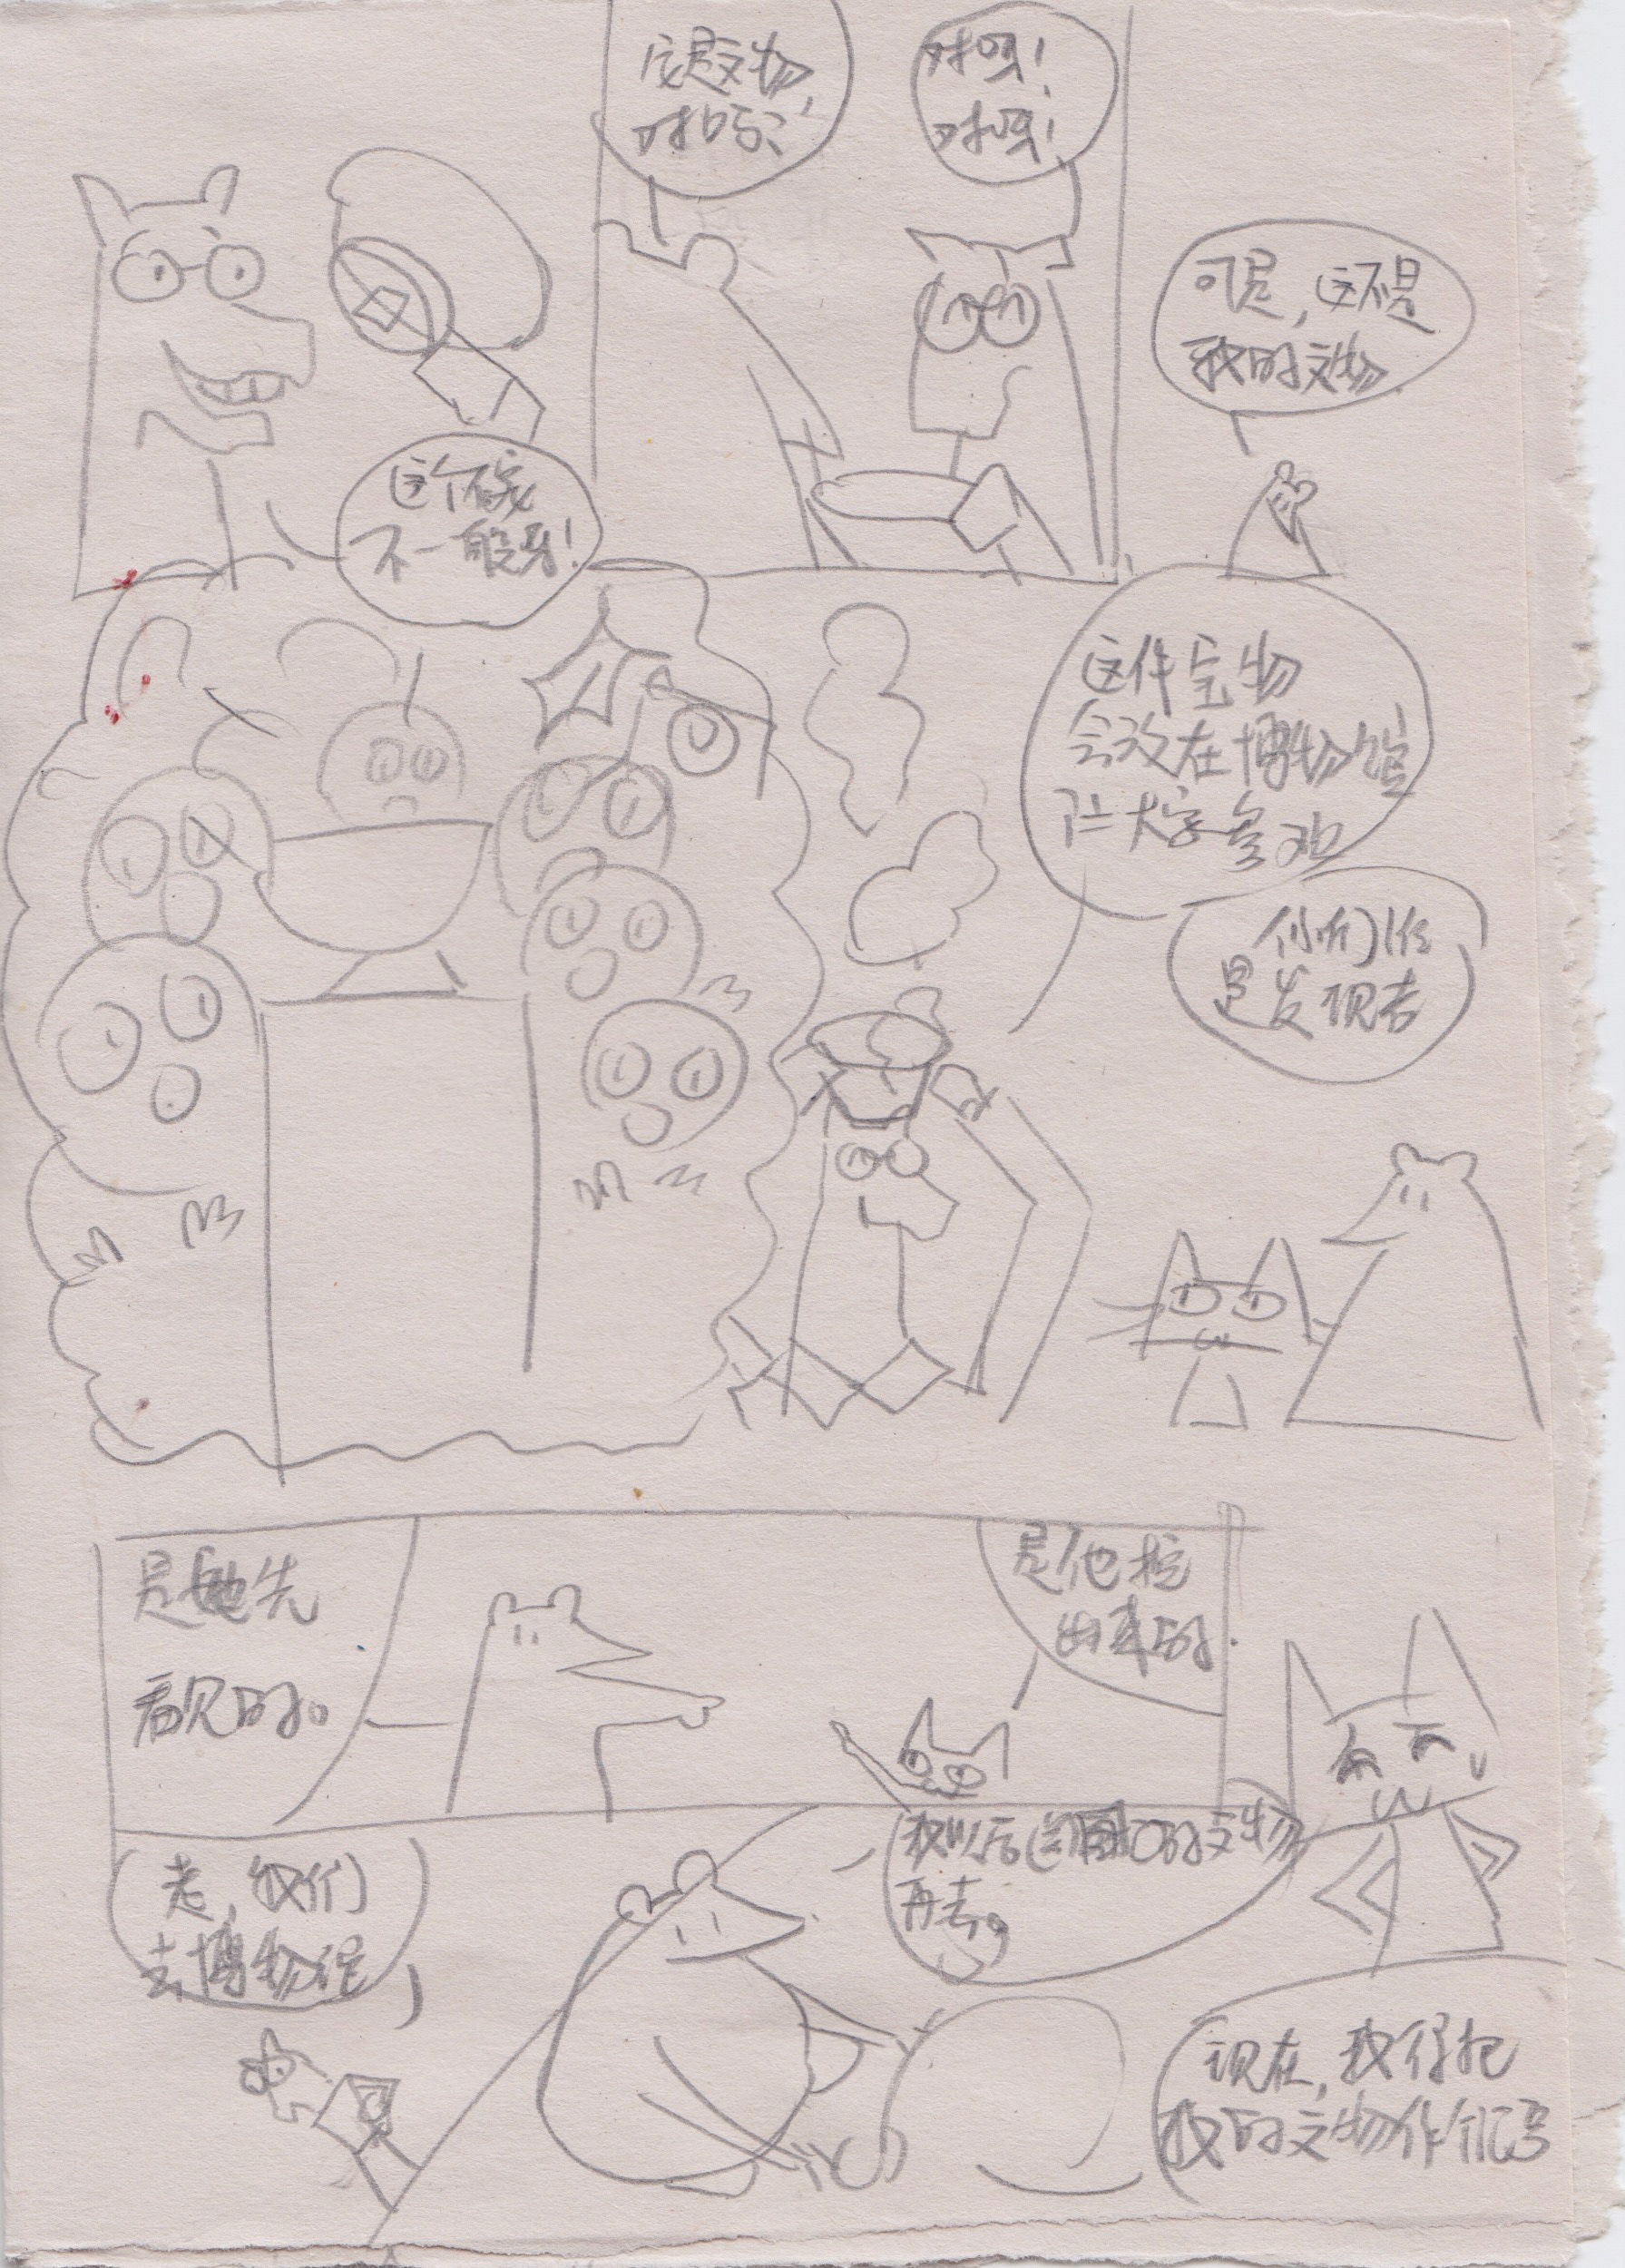 这个碗
不一般呀!
它是文物,
对吗?
对呀!
对呀!
可是,这不是
我的文物
这件宝物
会放在博物馆
让大家参观
你们俩
是发现者
是她先
看见的。
是他挖
出来的.
走,我们
去博物馆
我以后
的文物
再去。
现在,我得把
我的文物作记号